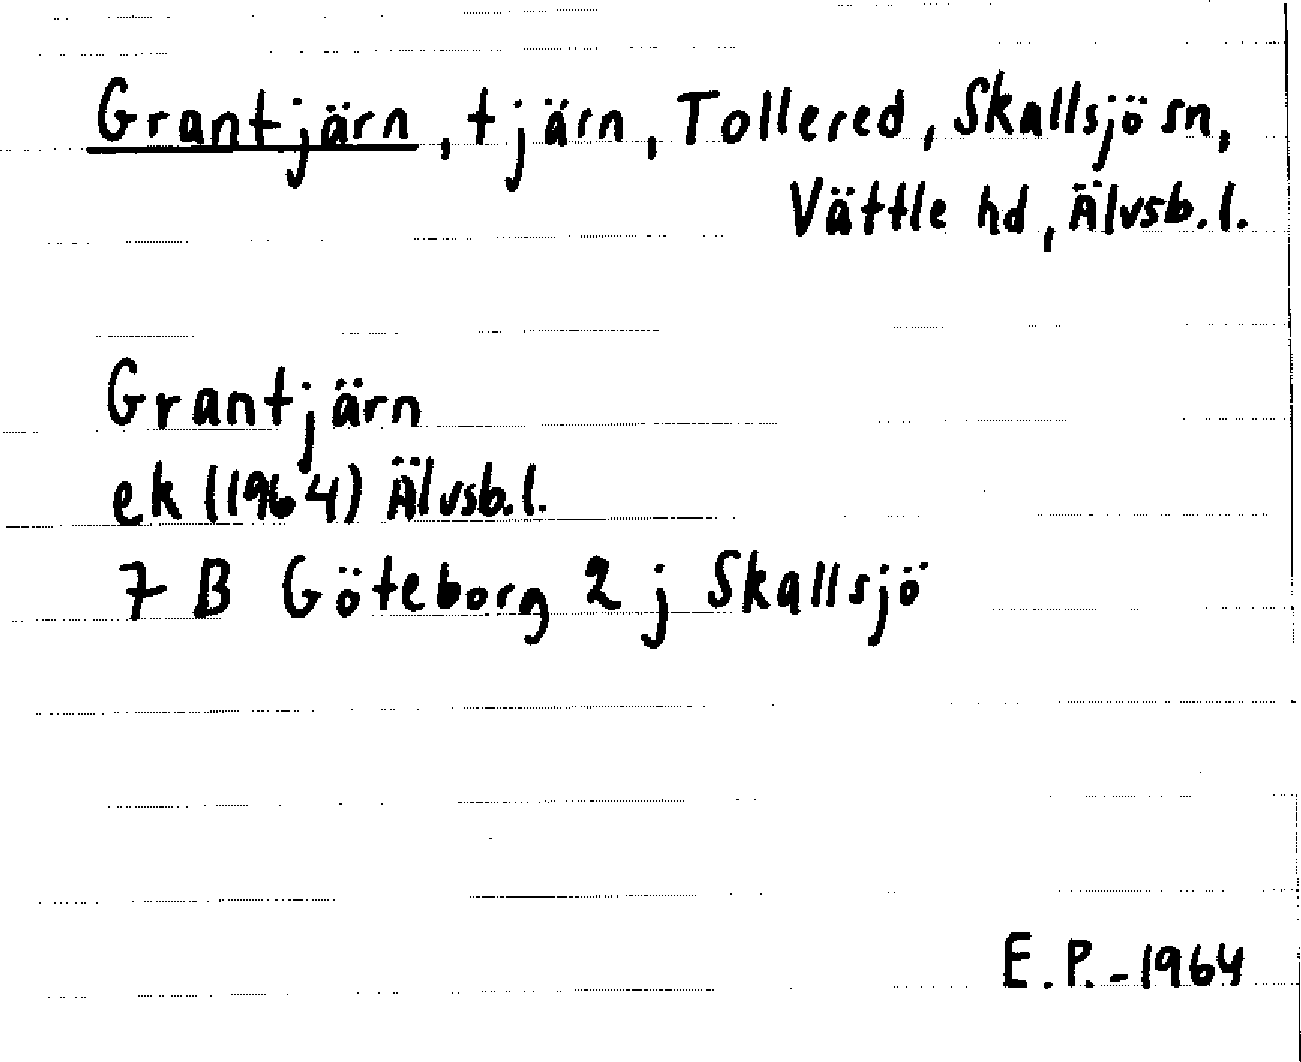 Grantjärn, tjärn, Tollered, Skallsjö sn,
Vättle hd, Älvsb. l.
Grantjärn
ek (1964) Älvsb. l.
7 B Göteborg 2 j Skallsjö
E. P. - 1964